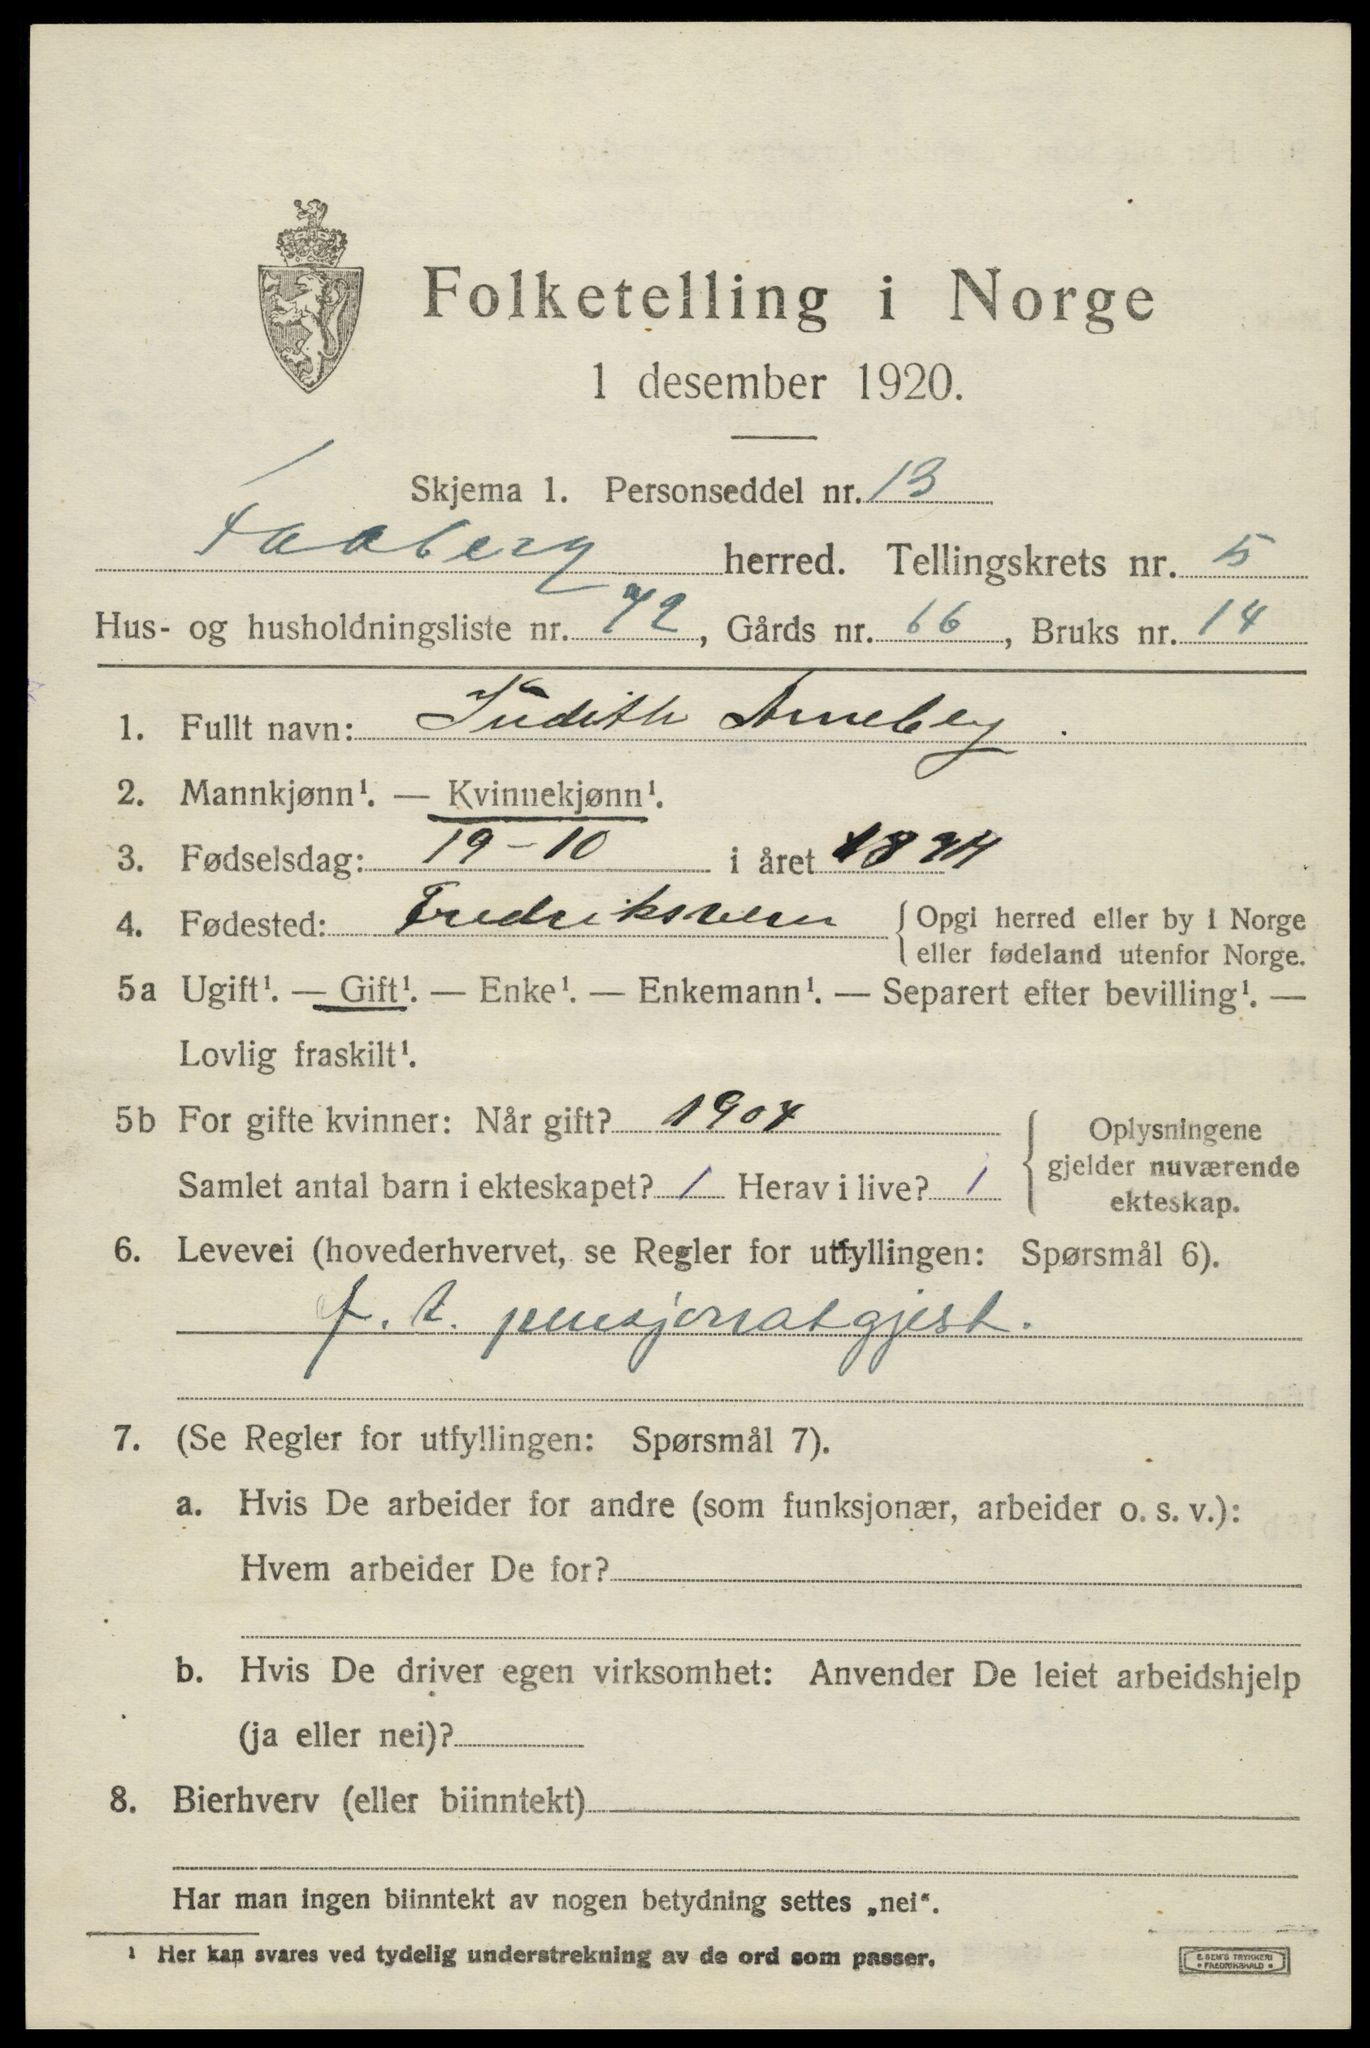 Folketelling i Norge
1 desember 1920.
Skjema 1. Personseddel nr. 13
Faaberg herred. Tellingskrets nr. 5
Hus- og husholdningsliste nr. 72, Gårds nr. 66, Bruks nr. 14
1. Fullt navn: Judith Arneberg.
2. Mannkjønn¹. — Kvinnekjønn¹.
3. Fødselsdag: 19-10 i året
4. Fødested: Fredriksvern { Opgi herred eller by i Norge
eller fødeland utenfor Norge.
5a Ugift¹. — Gift¹. — Enke¹. — Enkemann¹. — Separert efter bevilling¹. —
Lovlig fraskilt¹.
5b For gifte kvinner: Når gift? 1904
Samlet antal barn i ekteskapet? 1 Herav i live? 1
Oplysningene
gjelder nuværende
ekteskap.
6. Levevei (hovederhvervet, se Regler for utfyllingen: Spørsmål 6).
f. t. pensjonatgjest.
7. (Se Regler for utfyllingen: Spørsmål 7).
a. Hvis De arbeider for andre (som funksjonær, arbeider o. s. v.):
Hvem arbeider De for?
b. Hvis De driver egen virksomhet: Anvender De leiet arbeidshjelp
(ja eller nei)?
8. Bierhverv (eller biinntekt)
Har man ingen biinntekt av nogen betydning settes „nei“.
¹ Her kan svares ved tydelig understrekning av de ord som passer.
E. SEM'S TRYKKERI
• FREDRIKSHALD •